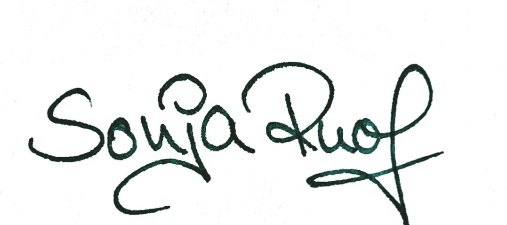 Sonja Ruof